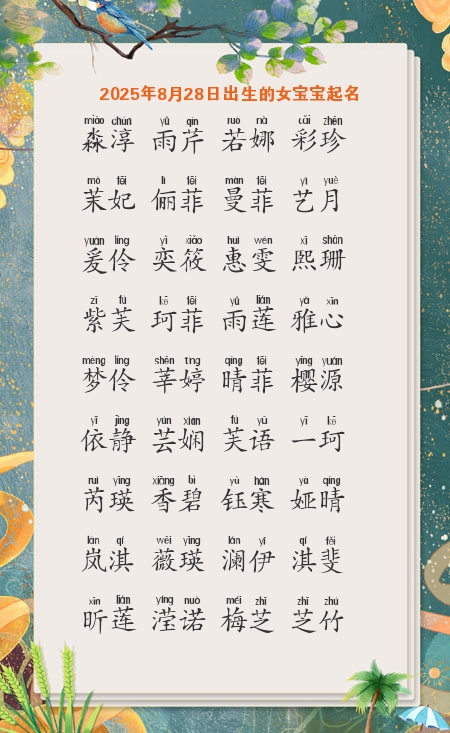 2025年8月28日出生的女宝宝起名
miǎo chún yǔ qín ruò nà cǎi zhēn
淼淳 雨芹 若娜 彩珍
mò fēi lì fēi màn fēi yì yuè
茉妃 俪菲 曼菲 艺月
yuán líng yì xiǎo huì wén xī shān
爰伶 奕筱 惠雯 熙珊
zǐ fú kē fēi yǔ lián yǎ xīn
紫芙 珂菲 雨莲 雅心
mèng líng shēn tíng qíng fēi yīng yuán
梦伶 莘婷 晴菲 樱源
yī jìng yún xián fú yǔ yī kē
依静 芸娴 芙语 一珂
ruì yīng xiāng bì yù hán yà qíng
芮瑛 香碧 钰寒 娅晴
lán qí wēi yīng lán yī qí fěi
岚淇 薇瑛 澜伊 淇斐
xīn lián yíng nuò méi zhī zhī zhú
昕莲 滢诺 梅芝 芝竹